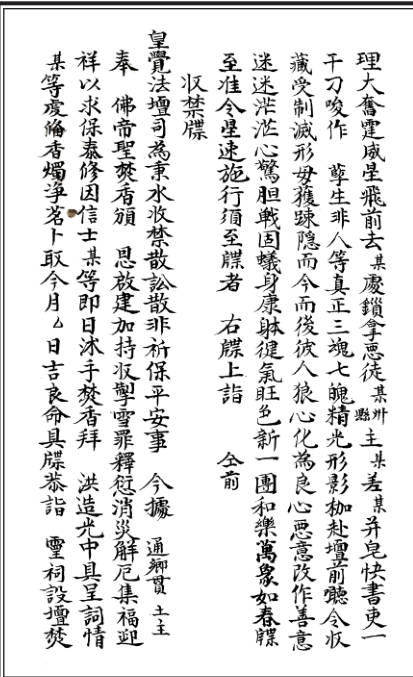 理大奮霆威星飛前去某處鎖拿惡徒某州縣主某差某并皂快書吏一
干刁唆作　孽生非人等真正三魂七魄精光形影枷赴壇前聽令收
藏受制滅形毋獲踈隱而今而後彼人狼心化為良心惡意改作善意
迷迷茫茫心驚胆戰固蟻身康躰徤氣旺色新一團和樂萬象如春牒
至准令星速施行須至牒者　右牒上詣　仝前
收禁牒
皇覺法壇司為秉水收禁散訟散非祈保平安事　今據　通鄉貫土主
奉　佛帝聖焚香頒　恩啟建加持收掣雪罪釋愆消災解厄集福迎
祥以求保泰修因信士某等即日沐手焚香拜　洪造光中具呈詞情
某等虔脩香燭淨茗卜取今月乙日吉良命具牒恭詣　霊祠設壇焚